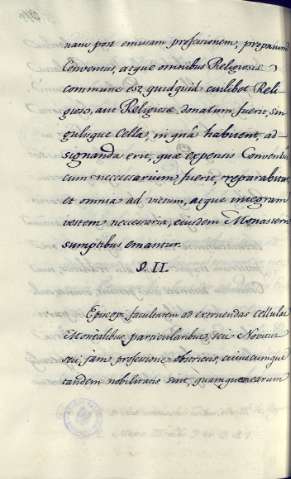 nam post emissam professionem, proprium
Conventus, atque omnibus Religiosis
commune est quidquid cuilibet Reli-
gioso, aut Religiosæ donatum fuerit, sin-
gulisque Cella, in quâ habitent, ad
signanda erit, quæ expensis Conventus
cum necessarium fuerit, reparabitur
et omnia ad victum, atque integram
vestem necessaria, eiusdem Monasterii
sumptibus emantur.
§. II.
Episcopi facultatem ad extruendas cellulas
Monialibus particularibus, sive Novitiis
seu jam professione obstrictis, cuiuscumque
tandem nobilitatis sint, quamquenearum